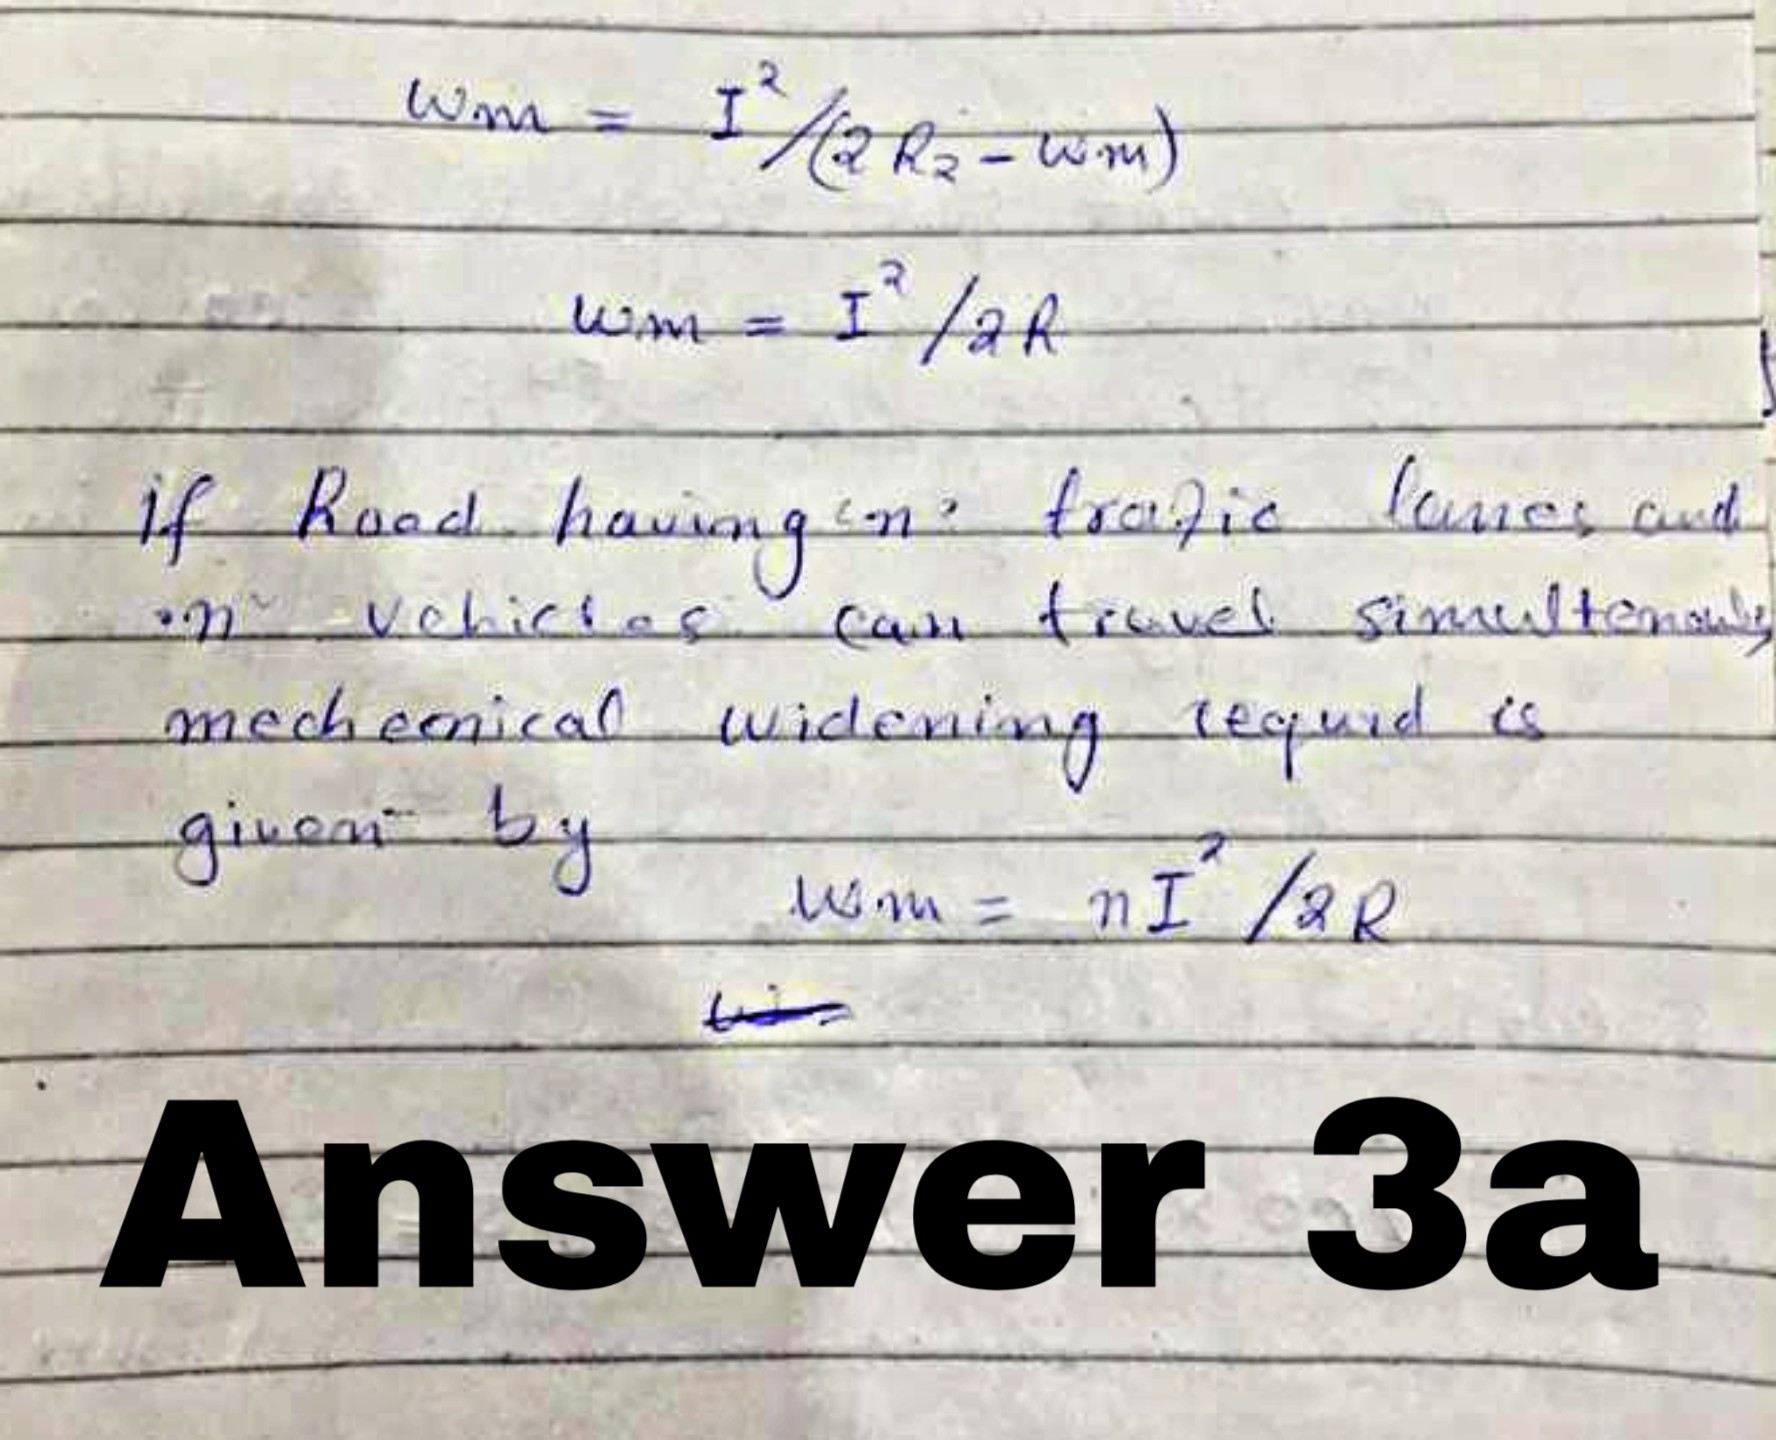 Wm = I²/(2R₂ - Wm)
Wm = I²/2R
if Road having 'n' trafic lanes and
'n' vehicles can travel simultenously
mechemical widening requrd is
given by
Wm = nI²/2R
Answer 3a